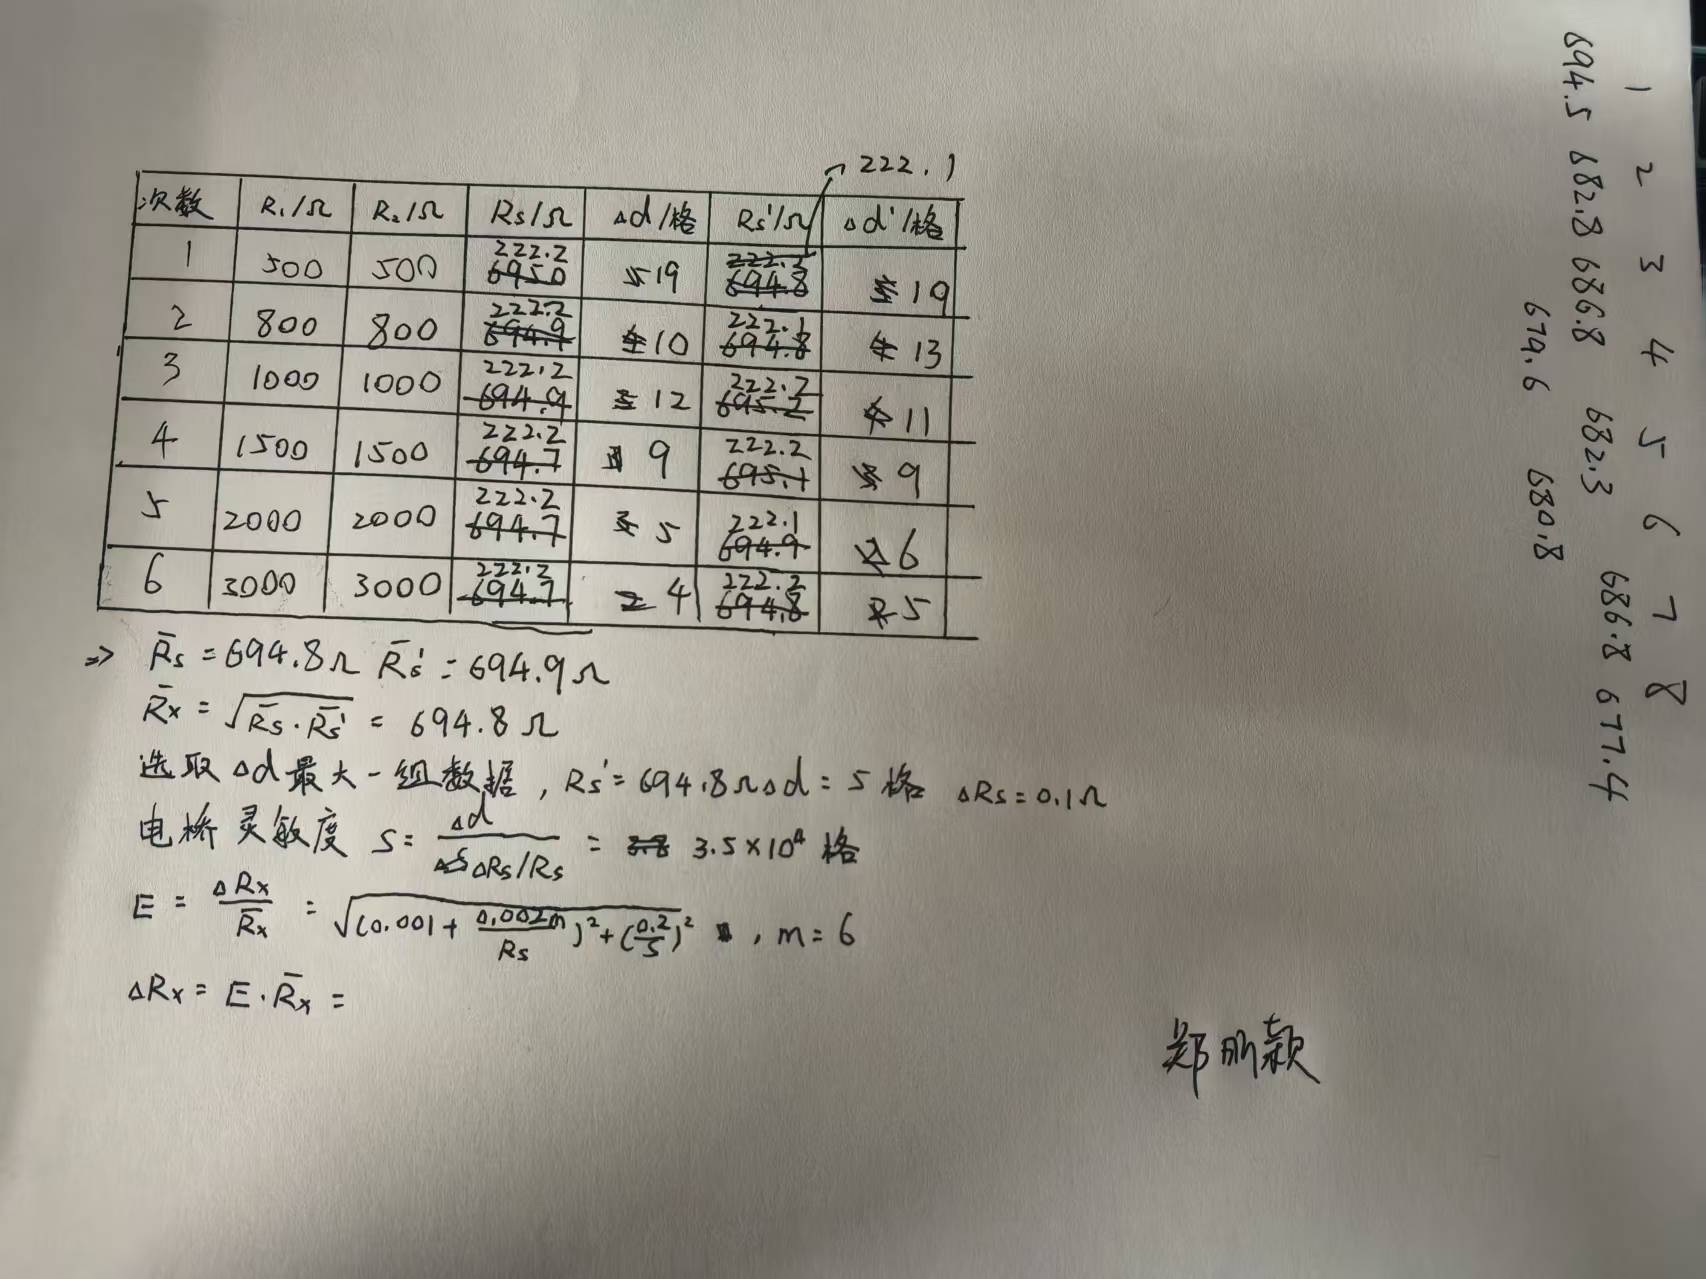 222.1
次数 R₁/Ω R₂/Ω Rs/Ω Δd/格 Rs'/Ω Δd'/格
1 500 500 222.2 695.0 19 694.8 19
2 800 800 222.2 694.9 10 222.1 694.8 13
3 1000 1000 222.2 694.9 12 222.2 695.2 11
4 1500 1500 222.2 694.7 9 222.2 695.1 9
5 2000 2000 222.2 694.7 5 222.1 694.9 6
6 3000 3000 222.2 694.7 4 222.2 694.8 5
⇒ R̄s = 694.8Ω R̄s' = 694.9Ω
R̄x = √(R̄s·R̄s') = 694.8Ω
选取Δd最大一组数据, Rs' = 694.8Ω Δd = 5格 ΔRs = 0.1Ω
电桥灵敏度 S = Δd / ΔRs/Rs = 3.5×10⁴ 格
E = ΔRx/R̄x = √((0.001 + 0.002m/Rs)² + (0.2/S)²), m = 6
ΔRx = E·R̄x =
郑
颖
1 2 3 4 5 6 7 8
694.5 682.8 686.8 682.3 686.8 677.4
679.6 680.8